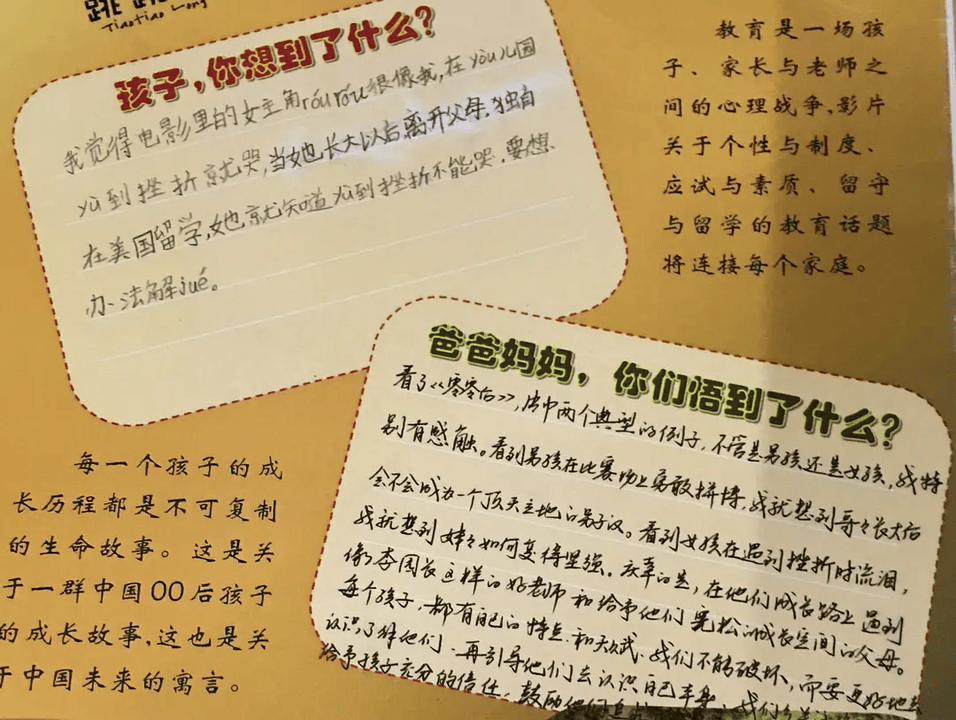 跳跳
TiaoTiao Long
孩子，你想到了什么？
我觉得电影里的女主角róu róu很像我，在yòu儿园
yù到挫折就哭，当她长大以后离开父母，独自
在美国留学，她就知道yù到挫折不能哭，要想
办法解jué。
教育是一场孩
子、家长与老师之
间的心理战争，影片
关于个性与制度、
应试与素质、留守
与留学的教育话题
将连接每个家庭。
爸爸妈妈，你们悟到了什么？
看了《零零后》，片中两个典型的例子，不管是男孩还是女孩，我特
别有感触。看到男孩在比赛场上勇敢拼搏，我就想到哥哥长大后
会不会成为一个顶天立地的男子汉。看到女孩在遇到挫折时流泪，
我就想到妹々如何变得坚强。庆幸的是，在他们成长路上遇到
像李园长这样的好老师和给予他们宽松的成长空间的父母。
每个孩子，都有自己的特点和天赋，我们不能破坏，而要更好地去
认识了解他们，再引导他们去认识自己
给予孩子充分的信任，鼓励他们
每一个孩子的成
长历程都是不可复制
的生命故事。这是关
于一群中国00后孩子
的成长故事，这也是关
于中国未来的寓言。